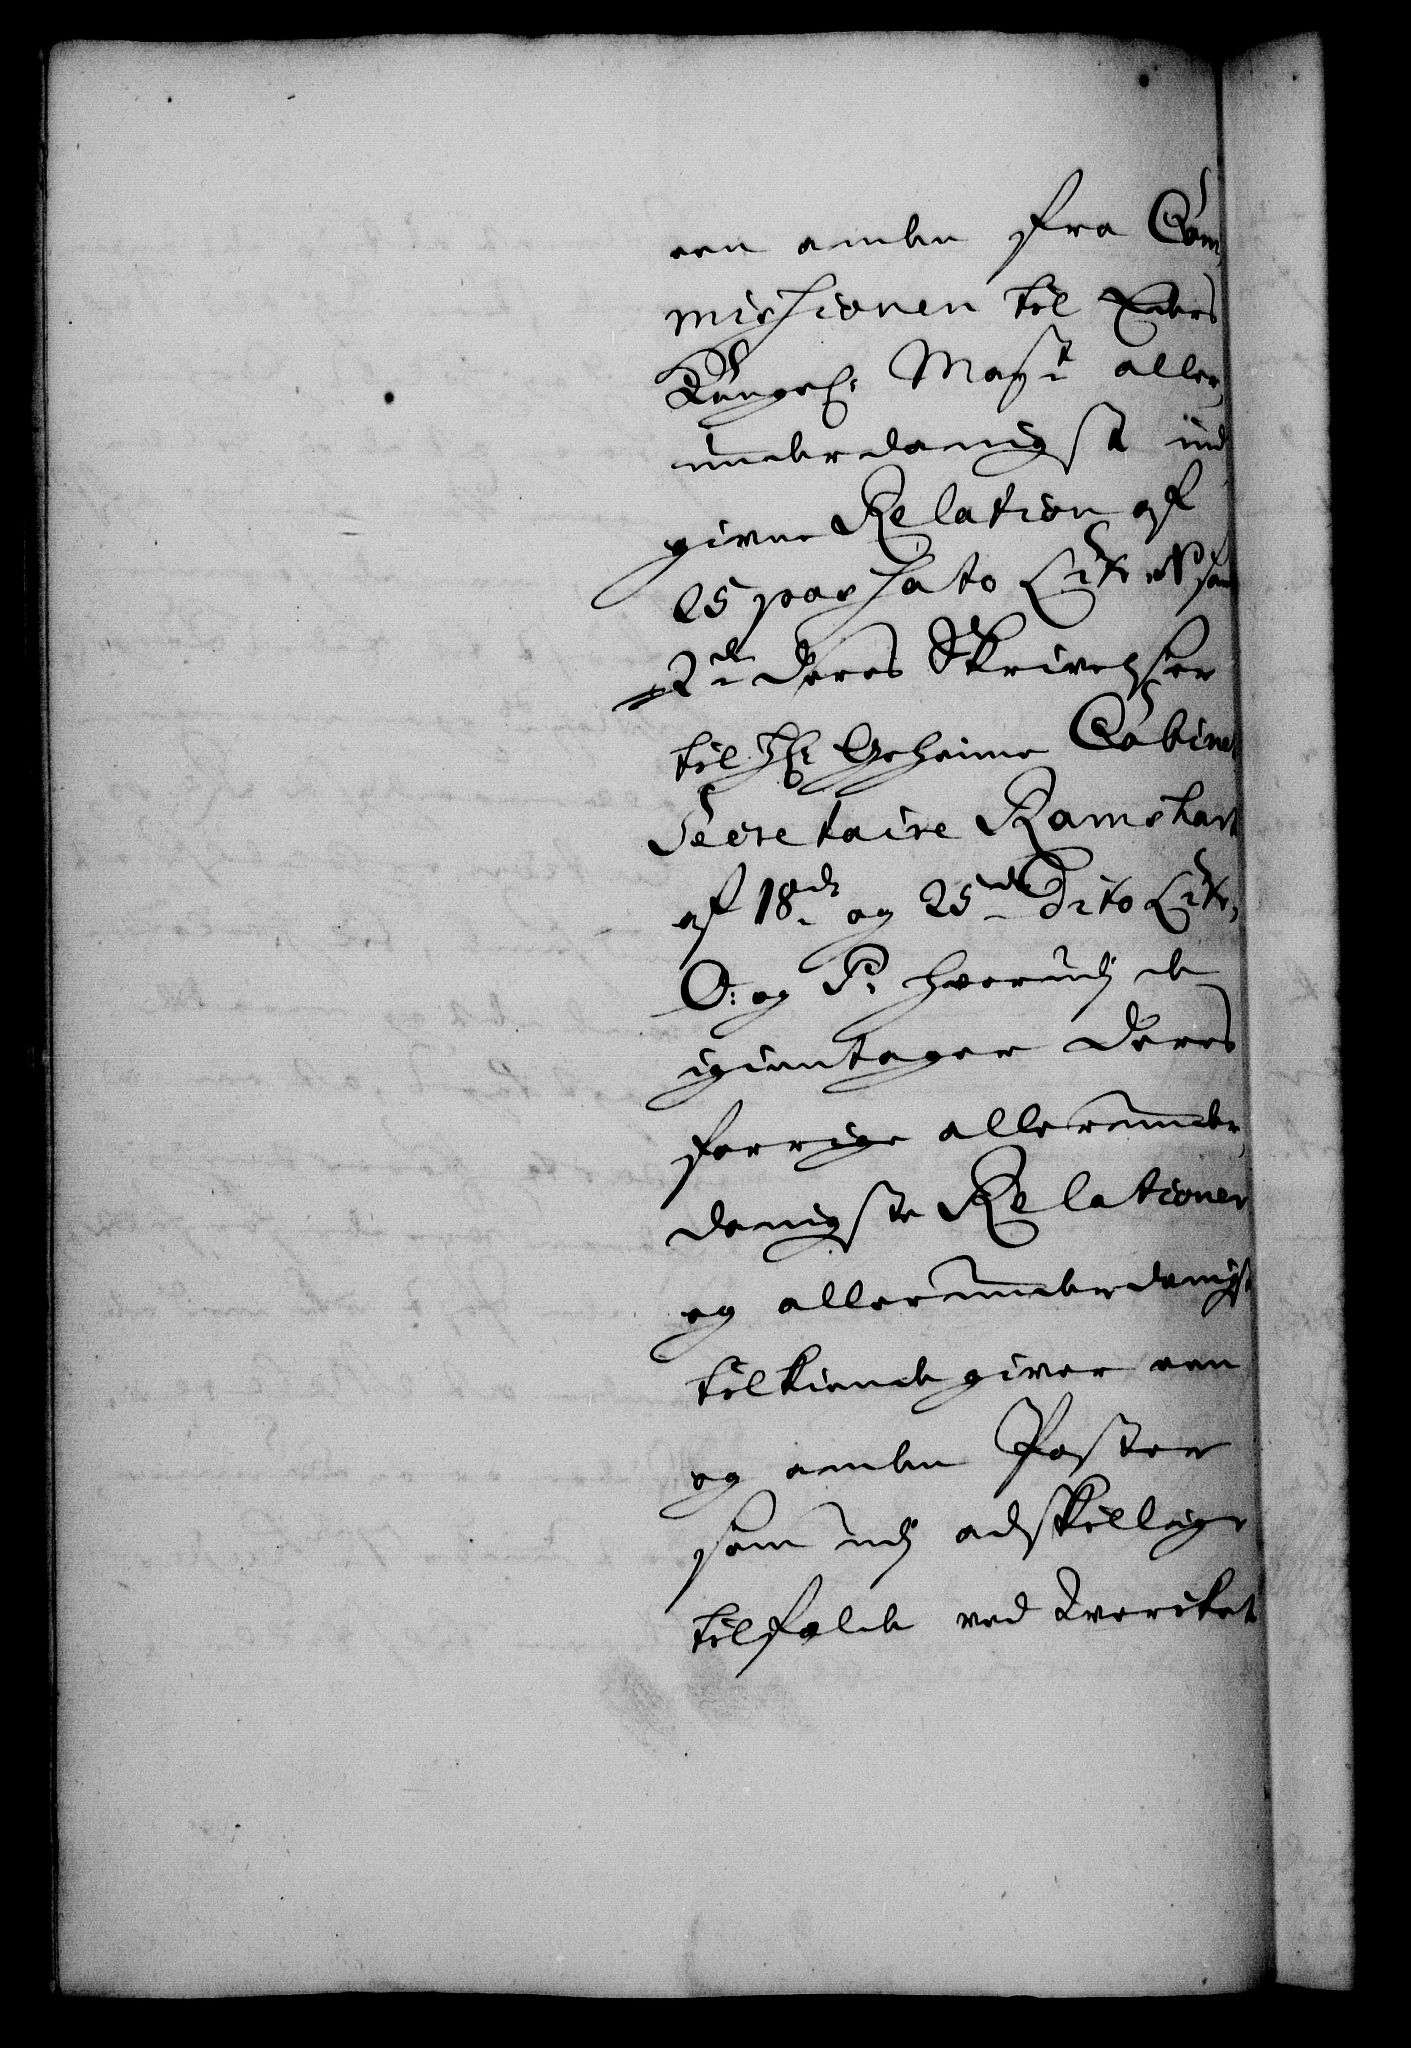 een anden fra Com-
mishionen til Eders
Kongel: Mayt aller-
underdanigst ind
givne Relation af
25 pashato Litr: N: sam
2de deres Skrivelser
til Hr: Geheime Cabinet
Secretaire Ramshart
af 18de og 25de Dito Litr:
O: og P: hvorudj de
igientager deres
forrige allerunder-
danigste Relationer
og allerunderdanigst
tilkiende giver een
og anden Poster
som udj adskillige
tilfelde ved Kverket